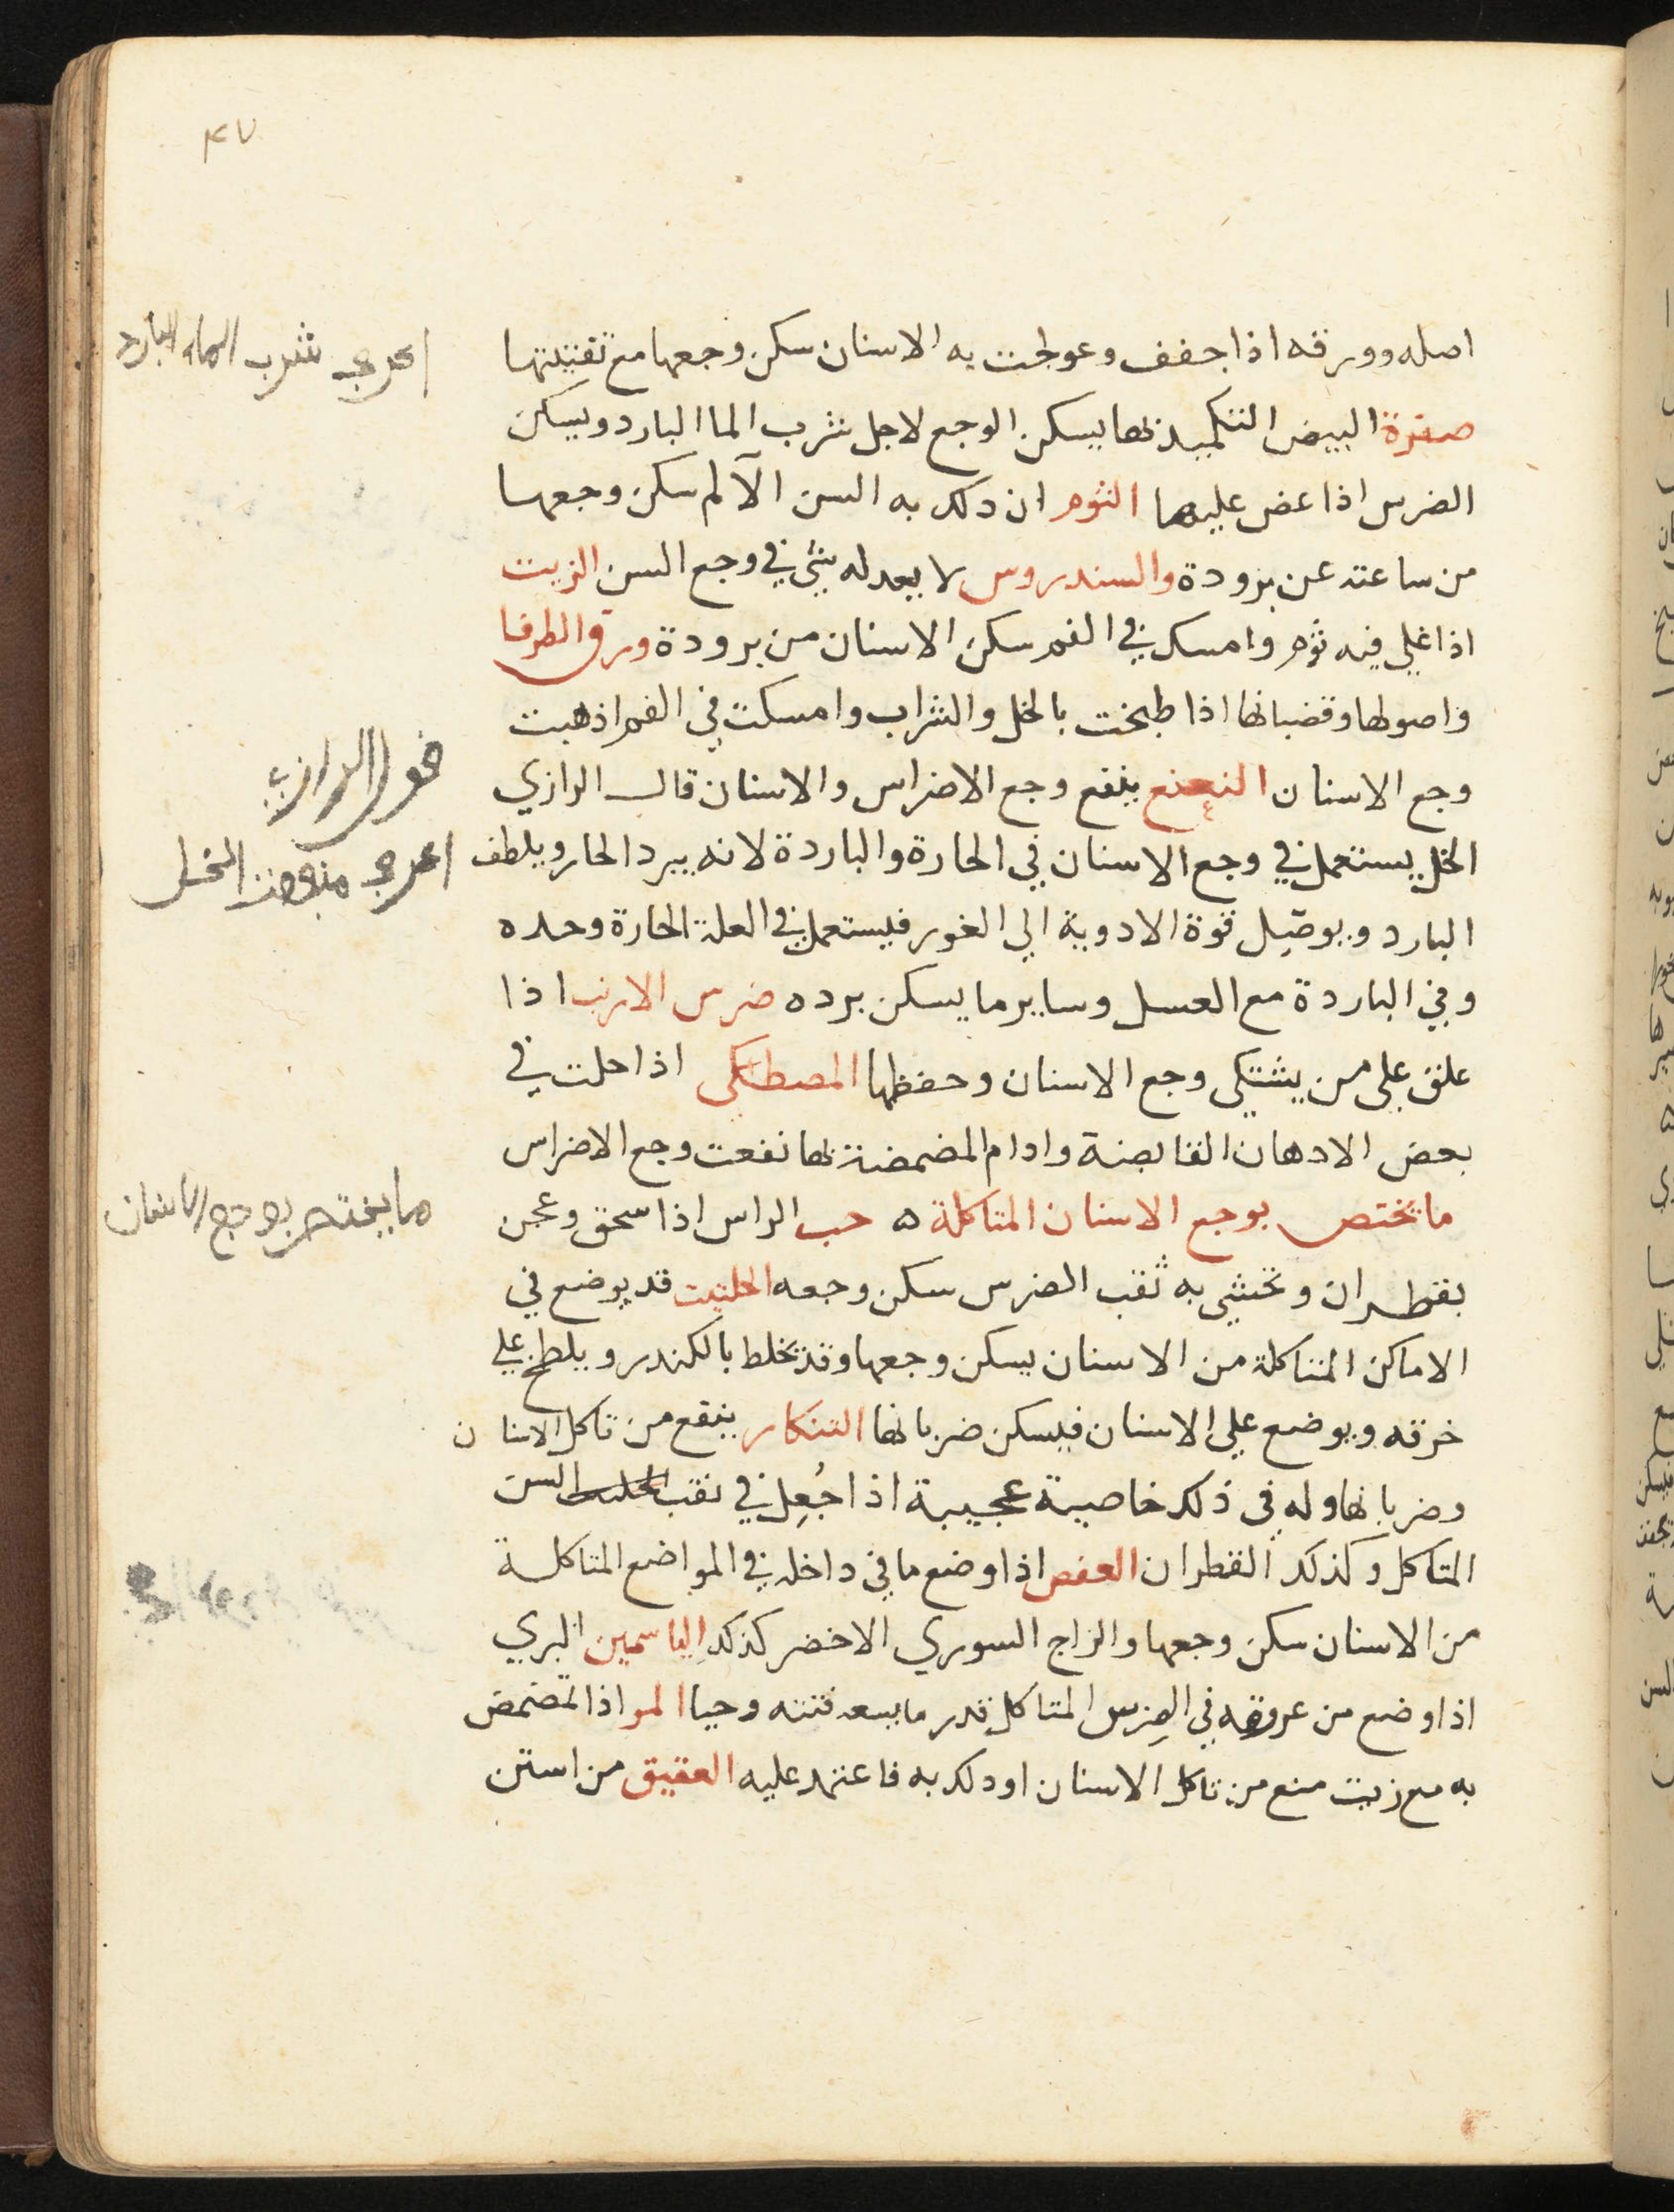 ٤٧
اصله وورقه اذا جفف وعولجت به الاسنان سكن وجعها مع تفتيتها
اعرف شرب الماء البارد
صفرة البيض التكميد بها يسكن الوجع لاجل شرب الما البارد ويسكن
الضرس اذا عض عليها الثوم ان دلك به السن الآلم سكن وجعها
من ساعته عن برودة والسندروس لا يعدله شئ في وجع السن الزيت
اذا غلي فيه ثوم وامسك في الفم سكن الاسنان من برودة ورق الطرفا
واصولها وقضبانها اذا طبخت بالخل والشراب وامسكت في الفم اذهبت
وجع الاسنان النعنع ينفع وجع الاضراس والاسنان قال الرازي
قول الرازي
الخل يستعمل في وجع الاسنان في الحارة والباردة لانه يبرد الحار ويلطف
اعرف منفعة الخل
البارد ويوصّل قوة الادوية الي الغور فيستعمل في العلة الحارة وحده
وفي الباردة مع العسل وساير ما يسكن برده ضرس الارنب اذا
علق علي من يشتكي وجع الاسنان وحفظها المصطكى اذا حلت في
بعض الادهان القابضة وادام المضمضة بها نفعت وجع الاضراس
ما يختص بوجع الاسنان المتاكلة ه حب الراس اذا سحق وعجن
ما يختص بوجع الاسنان
بقطران وتحشي به ثقب الضرس سكن وجعه الحلتيت قد يوضع في
الاماكن المتاكلة من الاسنان يسكن وجعها وقد يخلط بالكندر ويلطخ علي
خرقه ويوضع علي الاسنان فيسكن ضربانها التنكار ينفع من تاكل الاسنان
وضربانها وله في ذلك خاصية عجيبة اذا جُعِل في نقب السن
المتاكل وكذلك القطران العفص اذا وضع ما في داخله في المواضع المتاكلة
من الاسنان سكن وجعها والزاج السوري الاخضر كذلك الياسمين البري
اذا وضع من عروقه في الضرس المتاكل قدر ما يسعه فتته وحيا المر اذا تمضمض
به مع زيت منع من تاكل الاسنان او دلك به فاعتمد عليه العقيق من استن